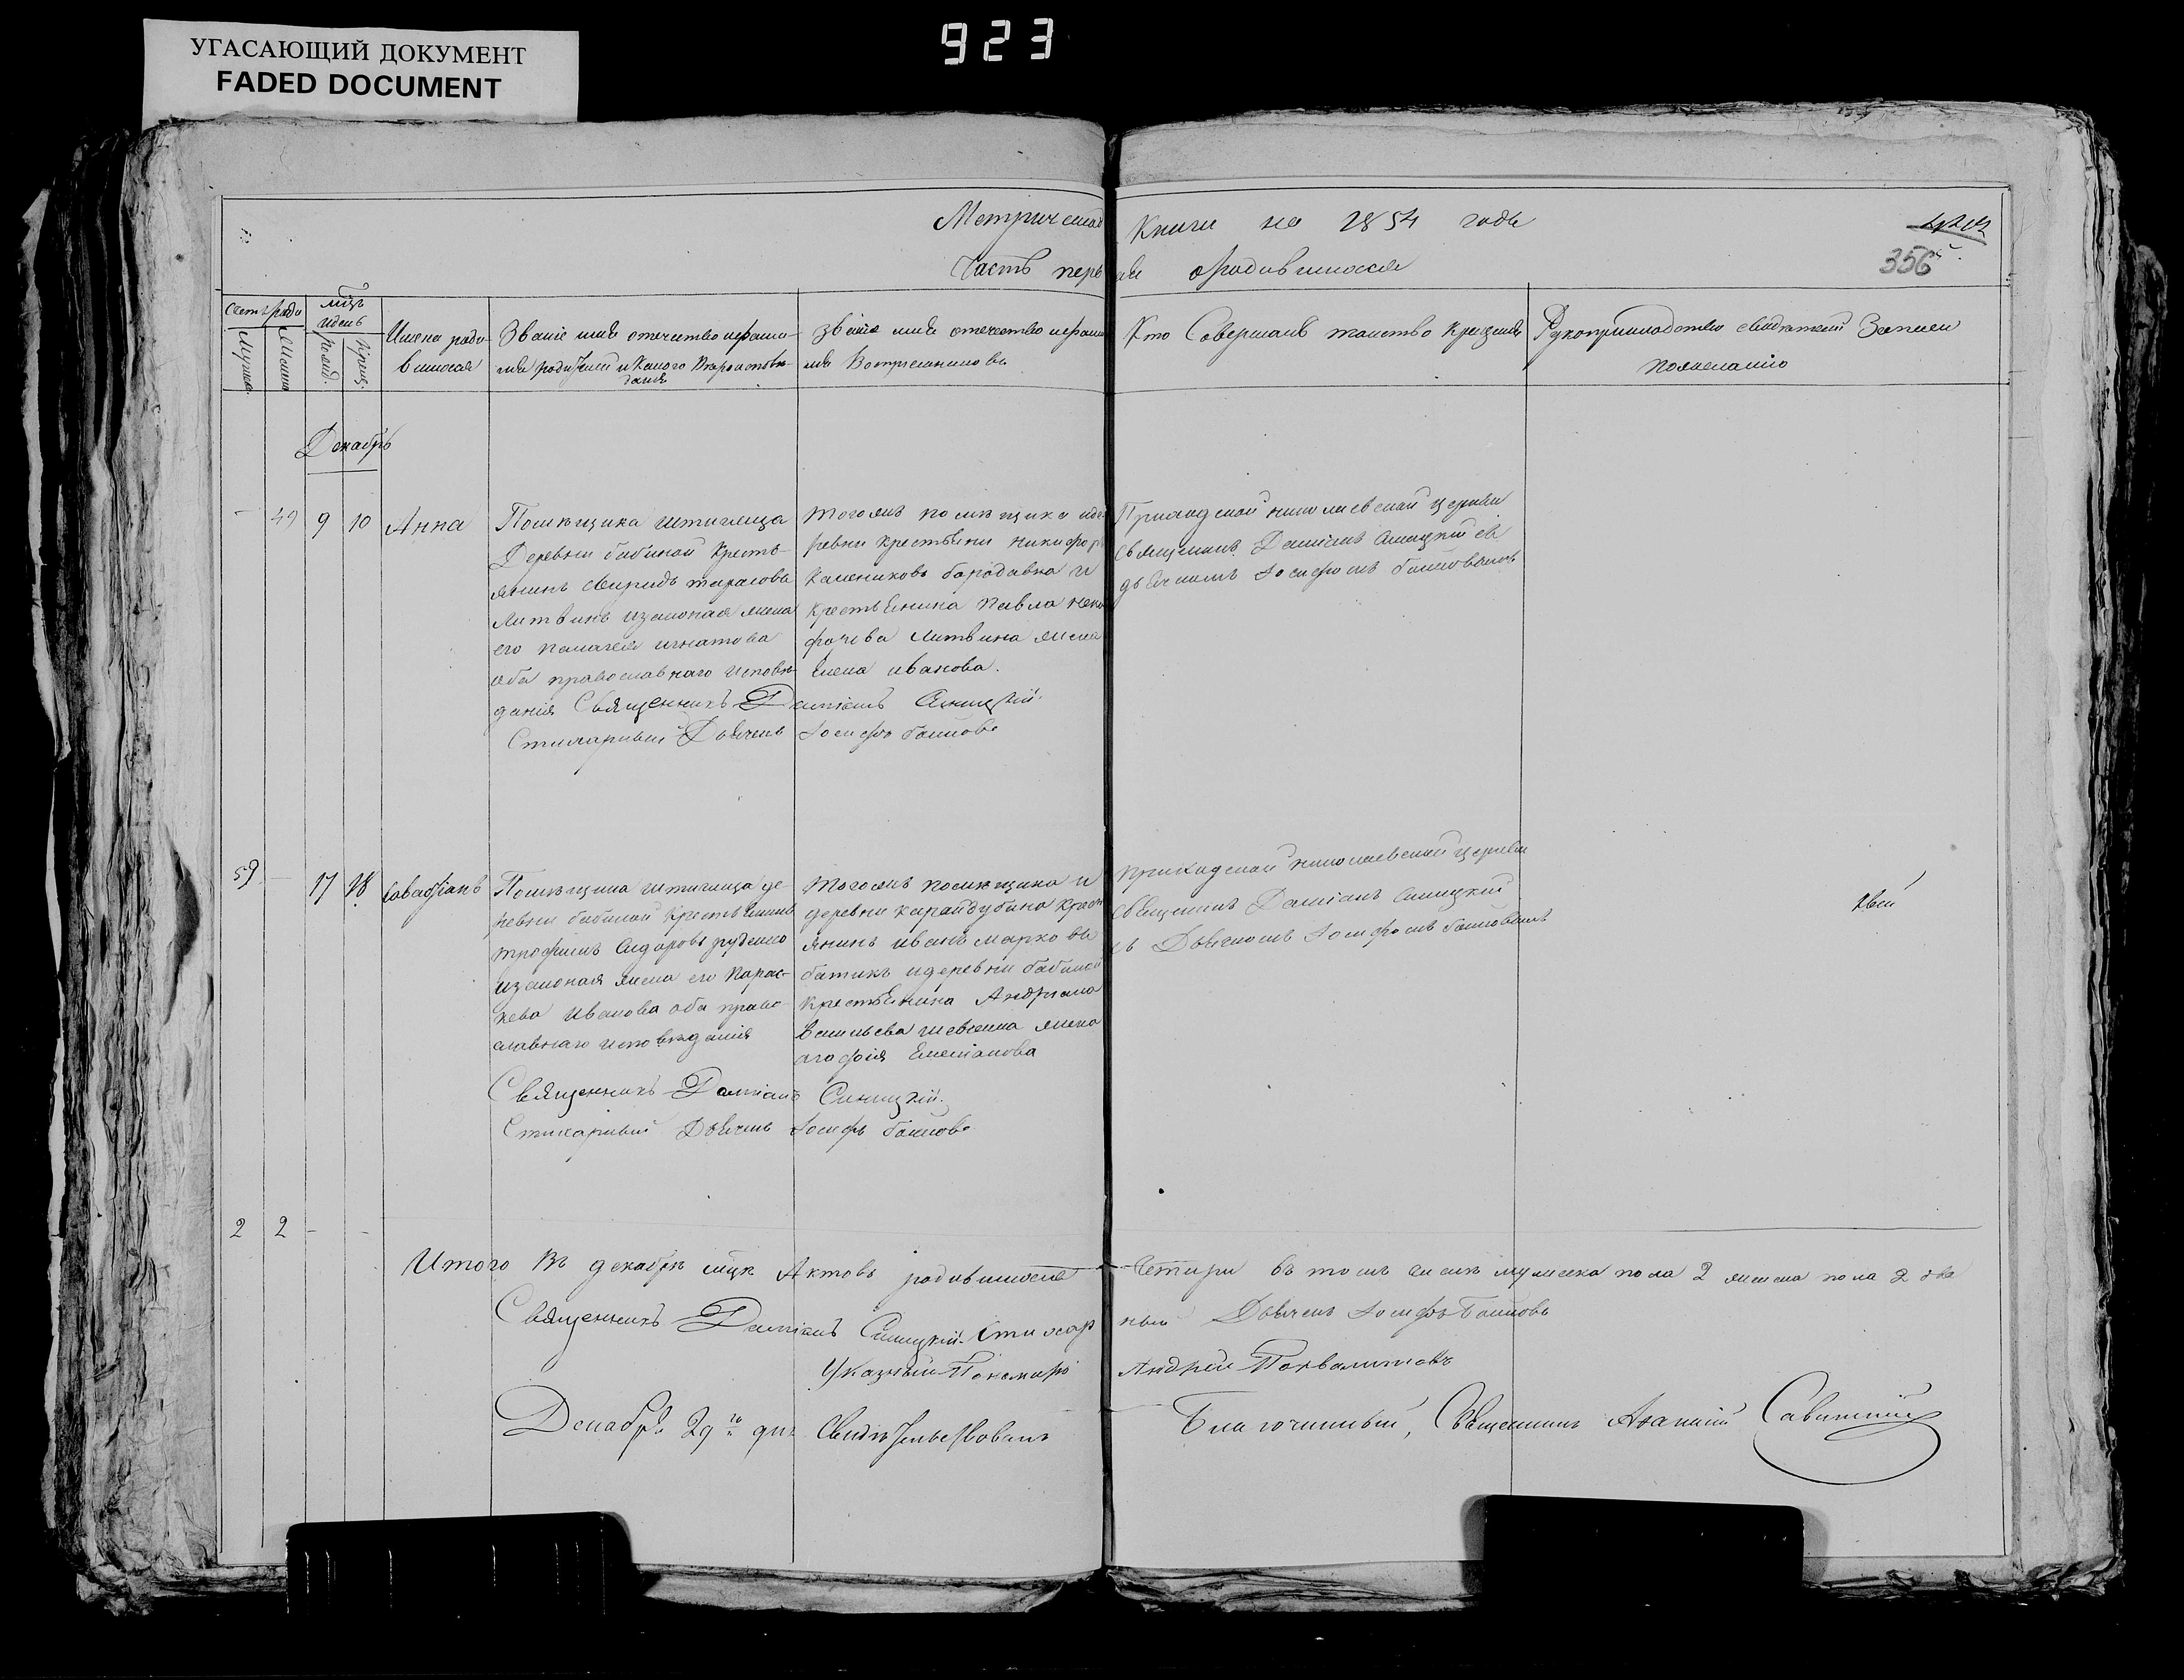 УГАСАЮЩИЙ ДОКУМЕНТ
FADED DOCUMENT
923
Метрической Книги на 1854 годъ
Часть первая о родившихся
356
Счетъ родив
Мужеск.
Женск.
мѣцъ
и день
рожд.
крещ.
Имена роди
вшихся
Званіе имя отечество и фами-
лія родителей и какого Вѣроисповѣ-
данія
Званіе имя отечество и фами
лія Воспріемниковъ
Кто Совершалъ таинство крещенія
Рукоприкладство свидѣтелей Записи
по желанію
Декабрь
49 9 10 Анна
Помѣщика Штиглица
Деревни бабиной Кресть-
янинъ Свиридъ тарасовъ
Литвинъ изаконая жена
его пелагея игнатова
оба православнаго исповѣ-
данія Священникъ Даміанъ Синицкій
Стихарный Дьячекъ Іосифъ
тогожъ помѣщика и де
ревни крестьянинъ никифоръ
бородавка и
крестьянина Павла ники
форова литвина жена
Елена иванова.
Приходской николаевской церкви
священникъ Даміанъ Синицкій съ
дьячкомъ Іосифомъ
59 - 17 18
Помѣщика штиглица де-
ревни бабиной Крестьянинъ
трофимъ Сидоровъ руденко
изаконая жена его Парас-
кева Иванова оба право-
славнаго исповѣданія
Священникъ Даміанъ Синицкій.
Стихарный Дьячекъ Іосифъ
тогожъ помѣщика и
деревни карайдубина крест
янинъ иванъ марковъ
батикъ и деревни бабиной
крестьянина Андріана
Васильева шевченка жена
агафія Емеліанова
приходской николаевской церкви
священникъ Даміанъ Синицкій
съ Дьячкомъ Іосифомъ
2 2 - -
Итого Въ декабрѣ мцѣ Актовъ родившихся Четыри въ томъ числѣ мужеска пола 2 женска пола 2 два
Священникъ Даміанъ Синицкій. Стихар ный Дьячекъ Іосифъ
Указный Пономарь Андрей
Декабря 29го дня Свидѣтельствовалъ Благочинный, Священникъ Ананій Савинскій